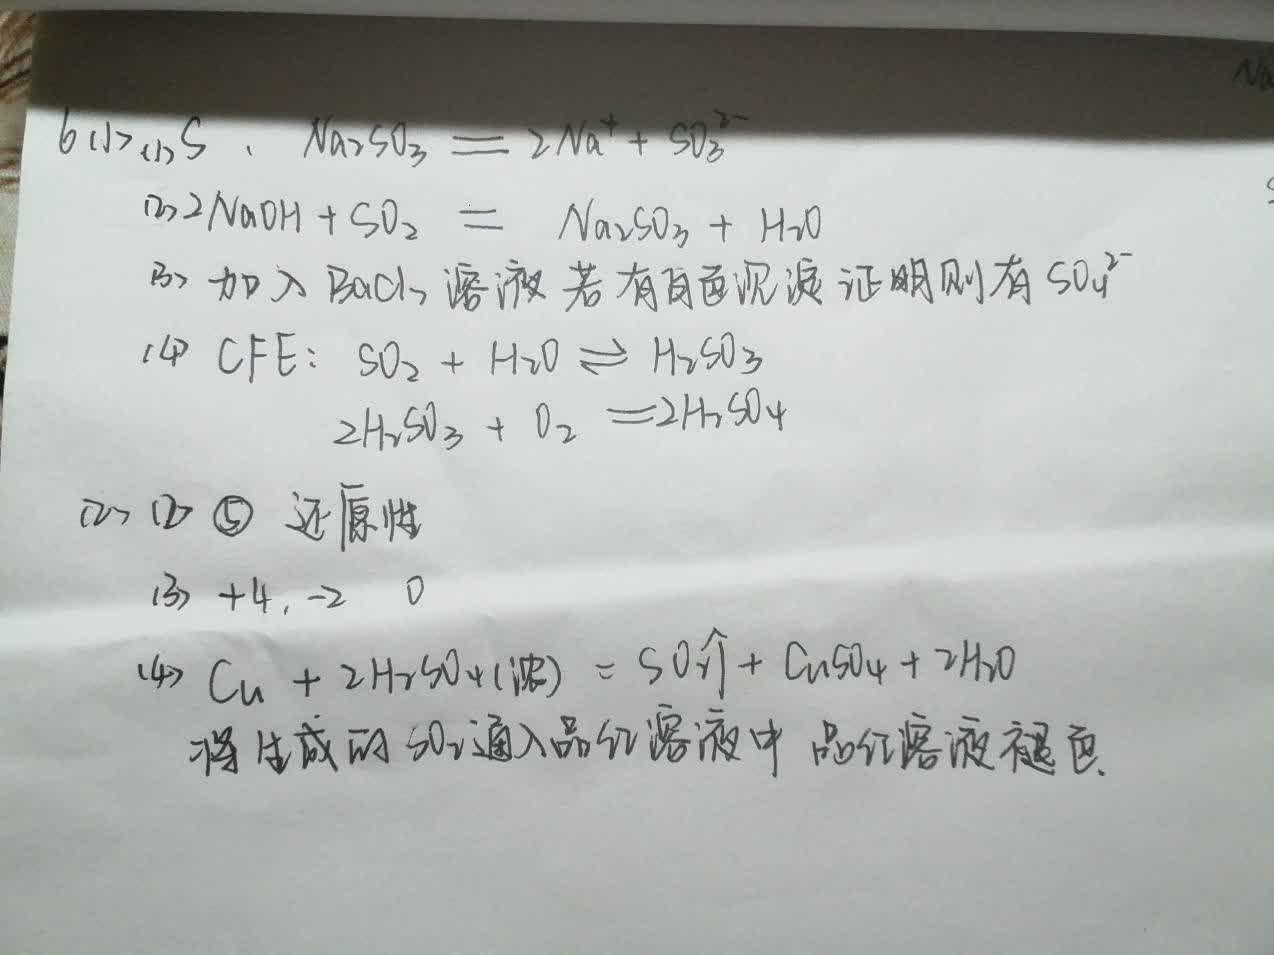 6(1)>(1)S、 Na₂SO₃ = 2Na⁺ + SO₃²⁻
(2) 2NaOH + SO₂ = Na₂SO₃ + H₂O
(3) 加入BaCl₂溶液若有白色沉淀证明则有SO₄²⁻
(4) CFE: SO₂ + H₂O ⇌ H₂SO₃
2H₂SO₃ + O₂ = 2H₂SO₄
(2) (2) ⑤ 还原性
(3) +4, -2 0
(4) Cu + 2H₂SO₄(浓) = SO₂↑ + CuSO₄ + 2H₂O
将生成的SO₂通入品红溶液中 品红溶液褪色.
Na